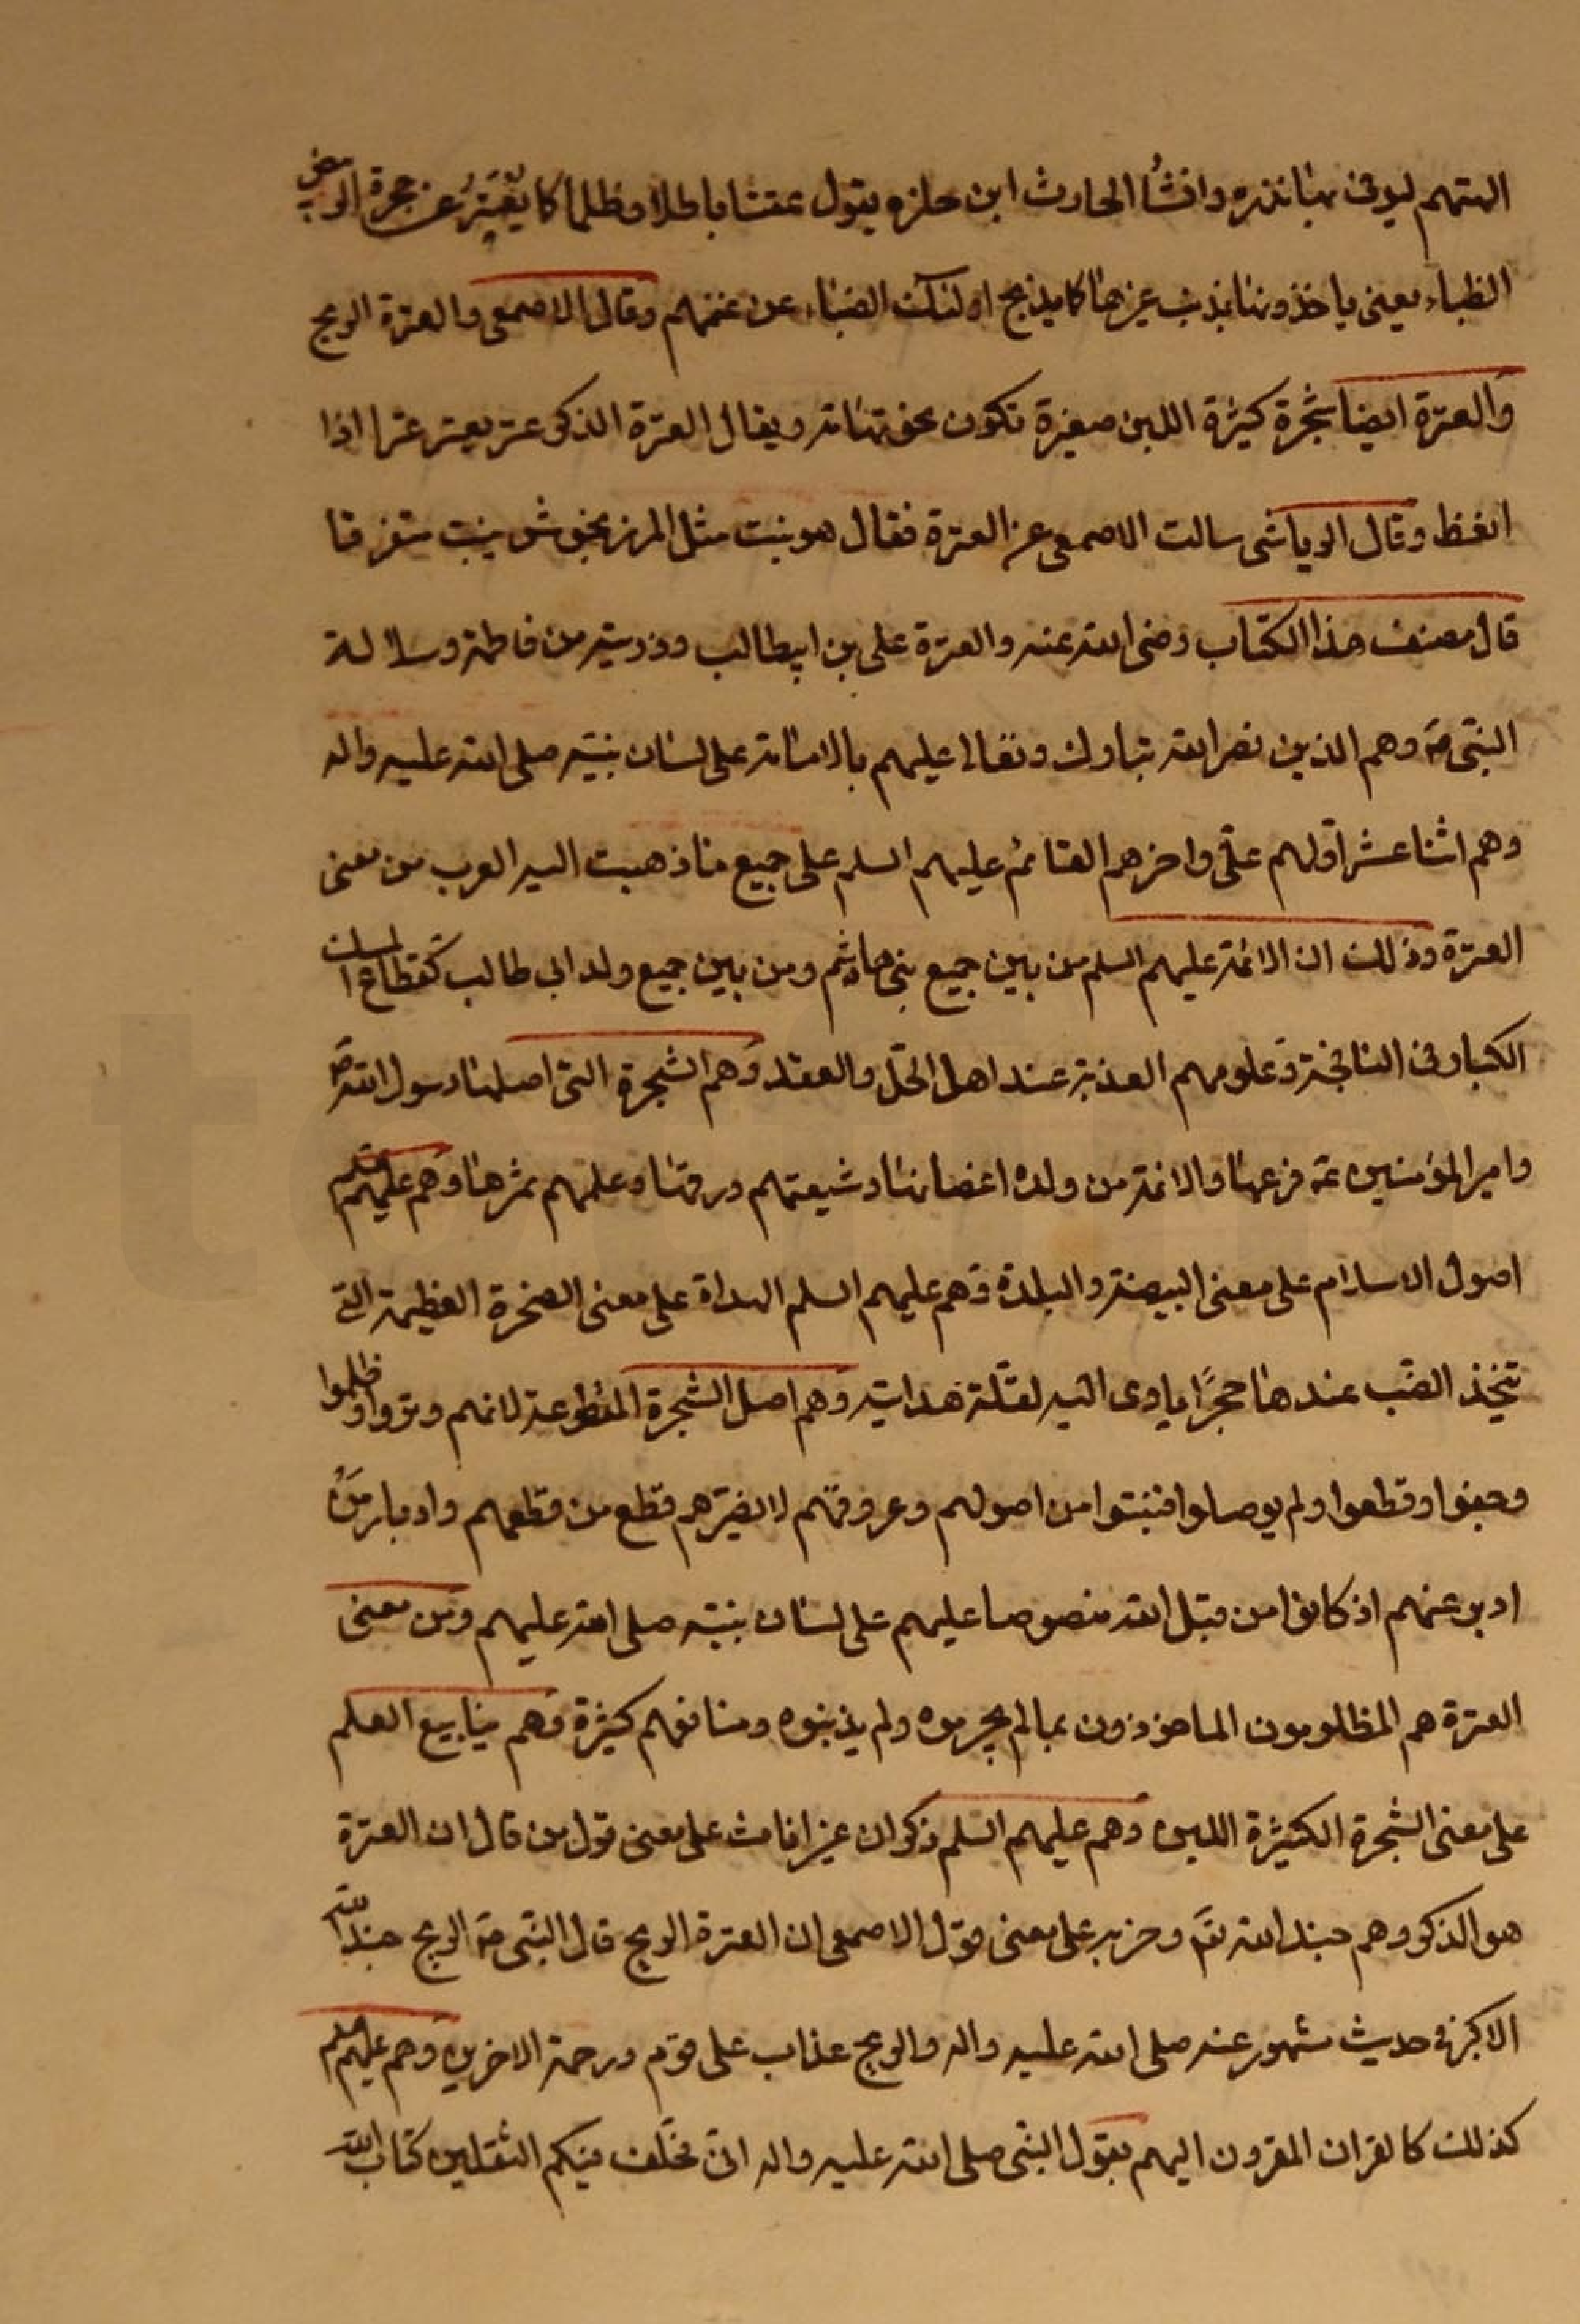 الهتهم ليوفى بها نذره وانشأ الحارث ابن حلزه يقول عنتا باطلا وظلما كما يُعتَرُ عن حجرة الربيض
الظباء يعنى ياخذوننا بذنب غيرها كما يذبح اولئك الظباء عن غنمهم وقال الاصمعى والعترة الريح
والعترة ايضا شجرة كثيرة اللبن صغيرة تكون نحو تهامة ويقال العترة الذكر عتر يعتر عترا اذا
انغظ وقال الرياشى سالت الاصمعى عن العترة فقال هو نبت مثل المرزنجوش ينبت متفرقا
قال مصنف هذا الكتاب رضى الله عنه والعترة على بن ابيطالب وذريته من فاطمة وسلالة
النبى صه وهم الذين نص الله تبارك وتعالى عليهم بالامامة على لسان نبيه صلى الله عليه واله
وهم اثنا عشر اوّلهم علىّ واخرهم القائم عليهم السلم على جميع ما ذهبت اليه العرب من معنى
العترة وذلك ان الائمة عليهم السلم من بين جميع بنى هاشم ومن بين جميع ولد ابى طالب كقطاع المسك
الكبار فى النافجة وعلومهم العذبة عند اهل الحّل والعقد وهم الشجرة التى اصلها رسول الله ص
وامير المؤمنين عه فرعها والائمة من ولده اغصانها وشيعتهم ورقها وعلمهم ثمرها وهم عليهم السلم
اصول الاسلام على معنى البيضة والبلدة وهم عليهم السلم الهداة على معنى الصخرة العظيمة التى
تتخذ الضب عندها حجرًا ياوى اليه لقلّة هدايته وهم اصل الشجرة المقطوعة لانهم وتروا وظلموا
وجفوا وقطعوا ولم يوصلوا فنبتوا من اصولهم وعروقهم لا يضرّهم قطع من قطعهم وادبار مَن
ادبر عنهم اذ كانوا من قبل الله منصوصا عليهم على لسان نبيه صلى الله عليهم ومن معنى
العترة هم المظلومون الماخوذون بما لم يجرموه ولم يذنبوه ومنافعهم كثيرة وهم ينابيع العلم
على معنى الشجرة الكثيرة اللبن وهم عليهم السلم ذكران غير اناث على معنى قول من قال ان العترة
هو الذكر وهم جند الله تعَ وحزبه على معنى قول الاصمعى ان العترة الريح قال النبى صه الريح جند الله
الاكبر فى حديث مشهور عنه صلى الله عليه واله والريح عذاب على قوم ورحمة لاخرين وهم عليهم السلم
كذلك كالقران المقرون اليهم بقول النبى صلى الله عليه واله انى مخلف فيكم الثقلين كتاب الله